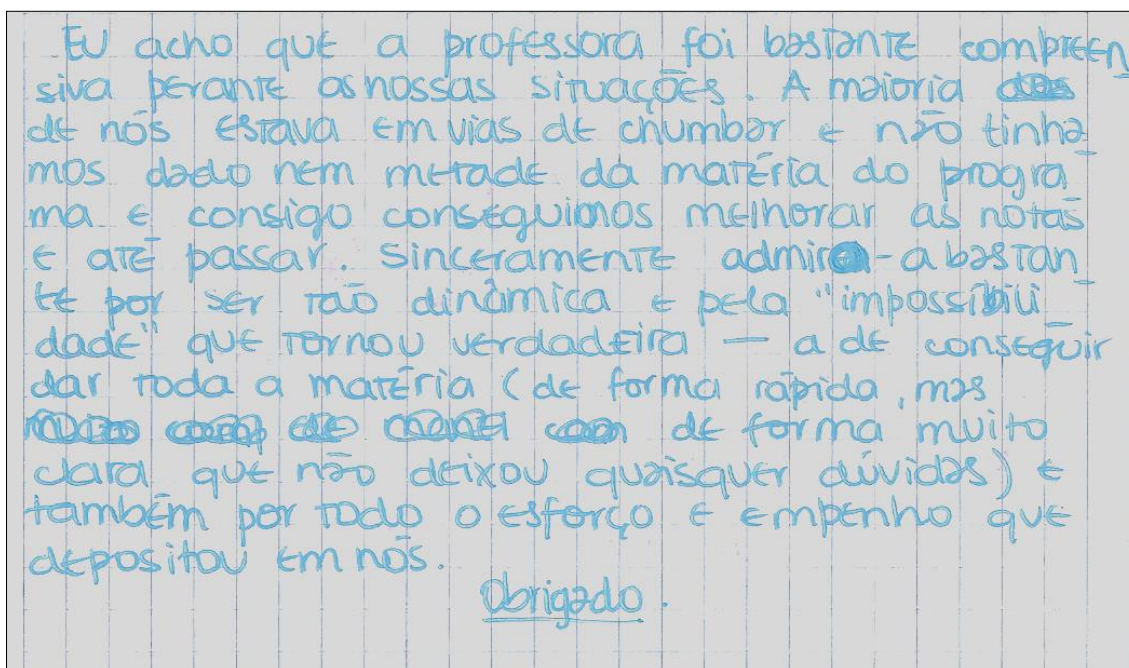 Eu acho que a professora foi bastante compreen
siva perante as nossas situações. A maioria
de nós estava em vias de chumbar e não tinha-
mos dado nem metade da matéria do progra-
ma e consigo conseguimos melhorar as notas
e até passar. Sinceramente admiro-a bastan-
te por ser tão dinâmica e pela "impossibili-
dade" que tornou verdadeira — a de conseguir
dar toda a matéria (de forma rápida, mas
de forma muito
clara que não deixou quaisquer dúvidas) e
também por todo o esforço e empenho que
depositou em nós.
Obrigado.